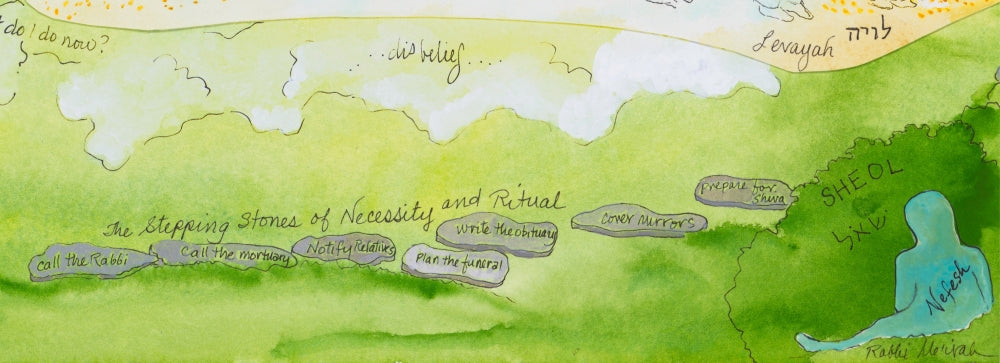 do I do now?
...disbelief....
Levayah לויה
The Stepping Stones of Necessity and Ritual
call the Rabbi
Call the mortuary
Notify Relatives
Write the obituary
Plan the funeral
cover mirrors
prepare for
Shiva
SHEOL
שאול
Nefesh
Rabbi Me'irah